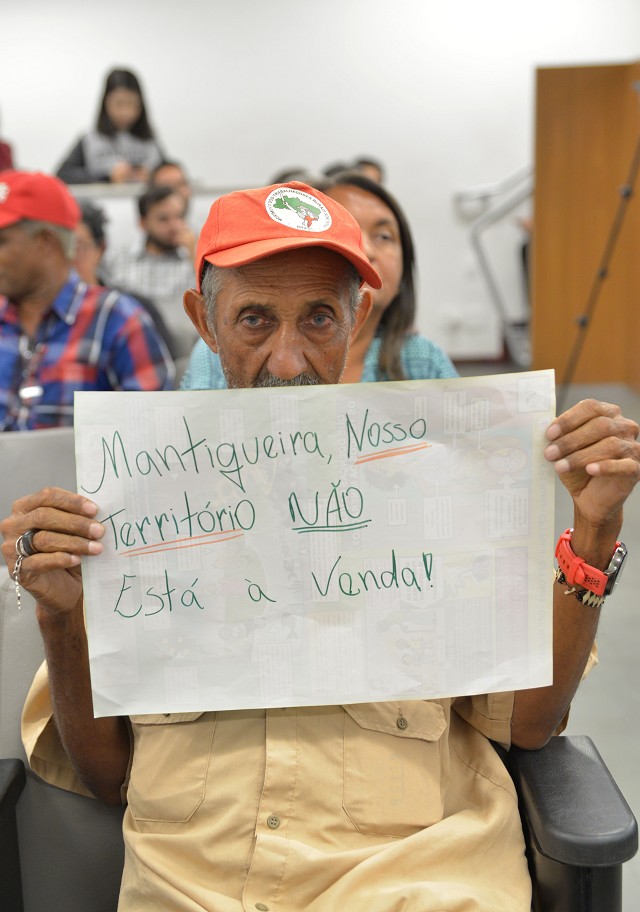 Mantiqueira, Nosso
Território NÃO
Está à Venda!